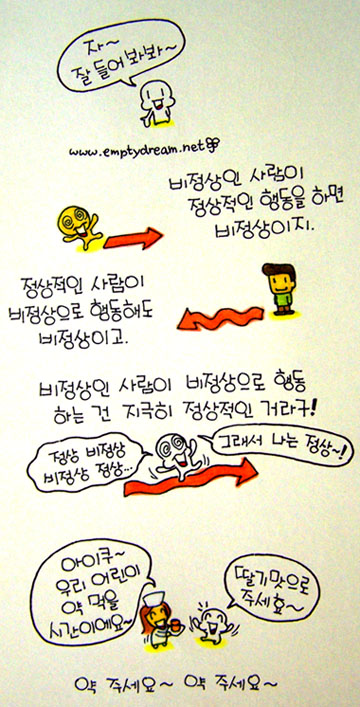 자~
잘 들어 봐봐~
www.emptydream.net
비정상인 사람이
정상적인 행동을 하면
비정상이지.
정상적인 사람이
비정상으로 행동해도
비정상이고.
비정상인 사람이 비정상으로 행동
하는 건 지극히 정상적인 거라구!
정상 비정상
비정상 정상...
그래서 나는 정상~!
아이쿠~
우리 어린이
약 먹을
시간이에요~
딸기맛으로
주세효~
약 주세요~ 약 주세요~